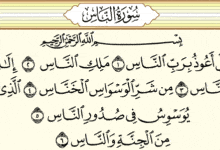 سُورَةُ النَّاسِ
بِسْمِ اللَّهِ الرَّحْمَٰنِ الرَّحِيمِ
أَعُوذُ بِرَبِّ النَّاسِ ١ مَلِكِ النَّاسِ ٢
٣ مِن شَرِّ الْوَسْوَاسِ الْخَنَّاسِ ٤ الَّذِى
يُوَسْوِسُ فِى صُدُورِ النَّاسِ ٥
مِنَ الْجِنَّةِ وَالنَّاسِ ٦